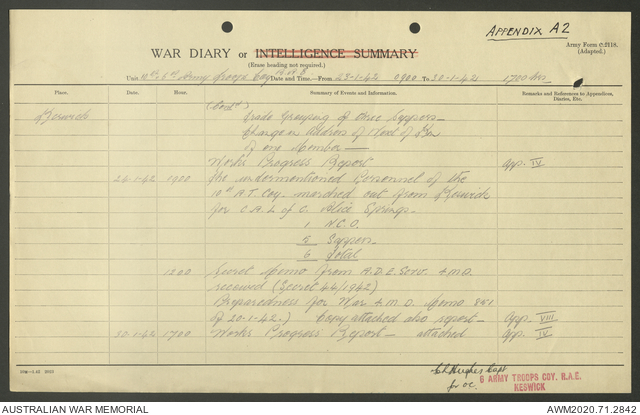 APPENDIX A2
Army Form C.2118.
(Adapted.)
WAR DIARY or INTELLIGENCE SUMMARY
(Erase heading not required.)
Unit 10th & 6th Army Troops Coy Date and Time—From 23-1-42 0900 To 30-1-42 1700 hrs
Place. Date. Hour. Summary of Events and Information. Remarks and References to Appendices, Diaries, Etc.
Keswick (Cont'd) Trade Grouping of three Sappers—
Change in Address of Next of Kin
of one Member —
Works Progress Report App. IV
1900 The undermentioned Personnel of the
10th A.T. Coy. marched out from Keswick
for Alice Springs—
1 N.C.O.
5 Sappers
6 Total
1200 Secret Memo from A.D.E. Serv. 4 M.D.
received (Secret 44/1942)
Preparedness for War 4 M.D. Memo
of 20-1-42.) Copy attached also report— App. VIII
30-1-42 1700 Works Progress Report— attached App. IV
C L Hughes Capt
for OC.
6 ARMY TROOPS COY. R.A.E.
KESWICK
AUSTRALIAN WAR MEMORIAL
AWM2020.71.2842